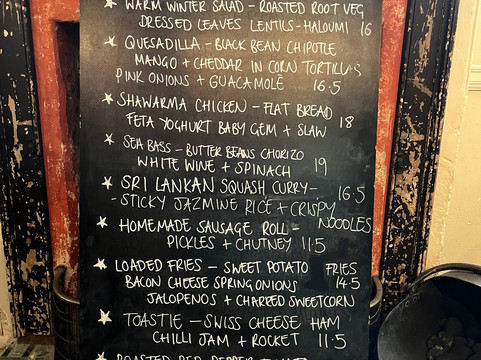 ★ WARM WINTER SALAD - ROASTED ROOT VEG
DRESSED LEAVES LENTILS - HALOUMI 16
★ QUESADILLA - BLACK BEAN CHIPOTLE
MANGO + CHEDDAR IN CORN TORTILLAS
PINK ONIONS + GUACAMOLE 16.5
★ SHAWARMA CHICKEN - FLAT BREAD
FETA YOGHURT BABY GEM + SLAW 18
★ SEA BASS - BUTTER BEANS CHORIZO
WHITE WINE + SPINACH 19
★ SRI LANKAN SQUASH CURRY- 16.5
- STICKY JAZMINE RICE + CRISPY
NOODLES
★ HOMEMADE SAUSAGE ROLL -
PICKLES + CHUTNEY 11.5
★ LOADED FRIES - SWEET POTATO FRIES
BACON CHEESE SPRING ONIONS 14.5
JALOPENOS + CHARED SWEETCORN
★ TOASTIE - SWISS CHEESE HAM
CHILLI JAM + ROCKET 11.5
ROASTED RED PEPPER